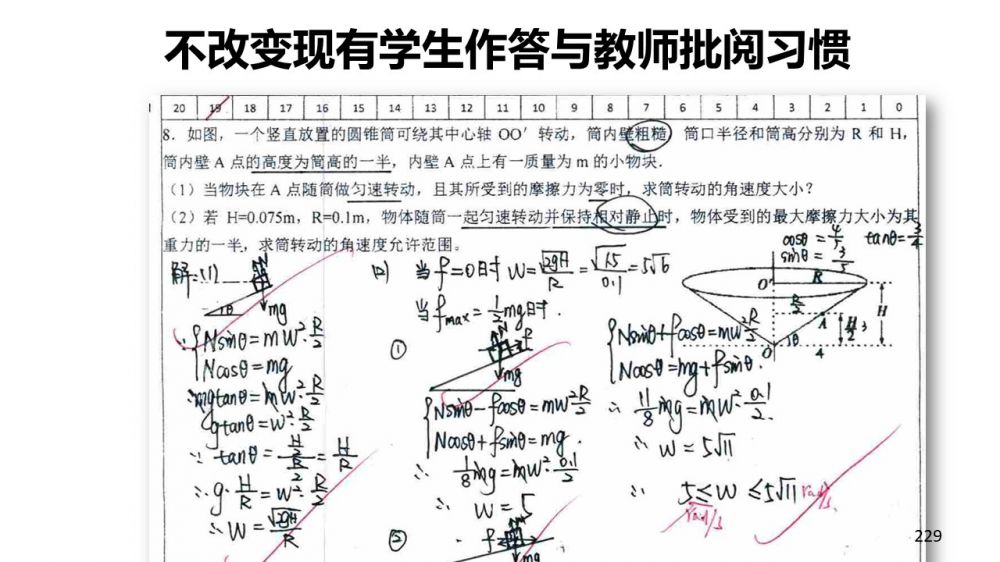 不改变现有学生作答与教师批阅习惯
20 19 18 17 16 15 14 13 12 11 10 9 8 7 6 5 4 3 2 1 0
8. 如图，一个竖直放置的圆锥筒可绕其中心轴 OO′ 转动，筒内壁粗糙，筒口半径和筒高分别为 R 和 H，
筒内壁 A 点的高度为筒高的一半，内壁 A 点上有一质量为 m 的小物块．
（1）当物块在 A 点随筒做匀速转动，且其所受到的摩擦力为零时，求筒转动的角速度大小？
（2）若 H=0.075m，R=0.1m，物体随筒一起匀速转动并保持相对静止时，物体受到的最大摩擦力大小为其
重力的一半，求筒转动的角速度允许范围。
cosθ = 4/5 tanθ = 3/4
sinθ = 3/5
解:(1)
N
θ
mg
Nsinθ = mW²·R/2
Ncosθ = mg
∴mgtanθ = mW²·R/2
gtanθ = W²·R/2
∵ tanθ = (H/2)/(R/2) = H/R
∴ g·H/R = W²·R/2
∴ W = √2gH/R
(2) 当f=0时 W = √2gH/R = √1.5/0.1 = 5√6
当fmax = 1/2mg时.
①
N
f
mg
Nsinθ - fcosθ = mW²R/2
Ncosθ + fsinθ = mg.
∴ 1/8mg = mW²·0.1/2
∴ W = 5
②
N
f
mg
Nsinθ + fcosθ = mW²R/2
Ncosθ = mg + fsinθ.
∴ 11/8mg = mW²·0.1/2.
∴ W = 5√11
∴ 5 ≤ W ≤ 5√11 rad/s.
rad/s
O′
R
R/2
A
H/2
3
H
O
θ
4
229